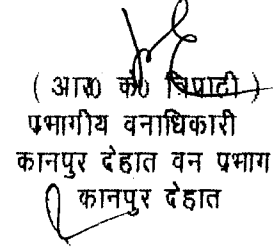 ( आर0 के0 त्रिपाठी )
प्रभागीय वनाधिकारी
कानपुर देहात वन प्रभाग
कानपुर देहात